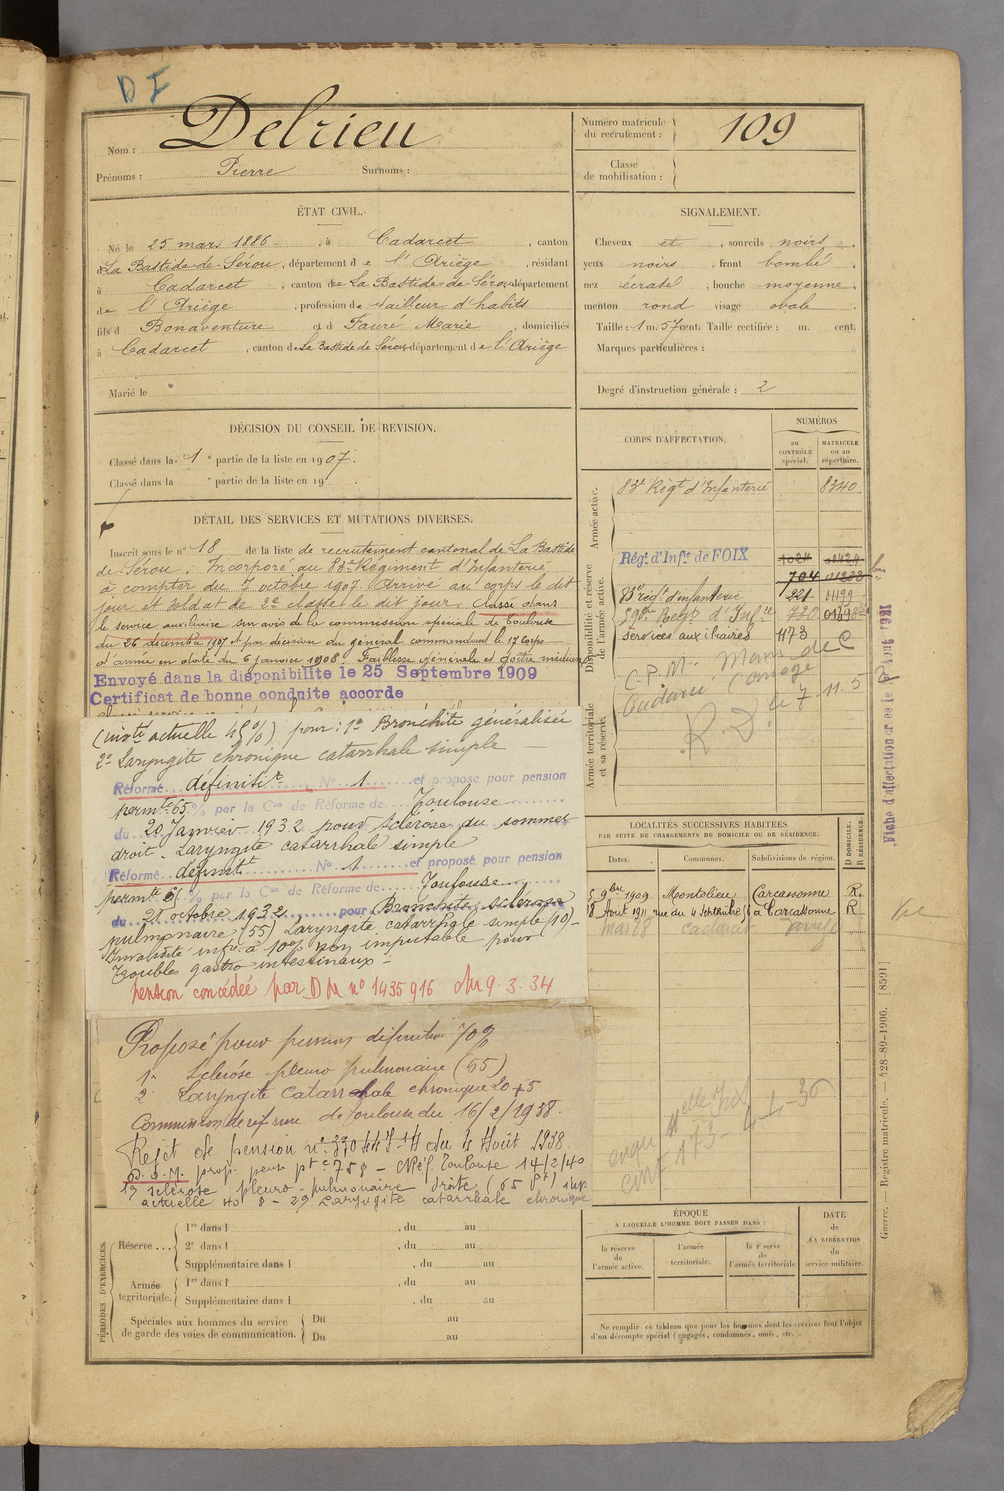 D I
Nom : Delrieu
Prénoms : Pierre Surnoms :
Numéro matricule
du recrutement : 109
Classe
de mobilisation :
ÉTAT CIVIL.
Né le 25 mars 1886, à Cadarcet, canton
de La Bastide-de-Sérou, département de l'Ariège, résidant
à Cadarcet, canton de La Bastide-de-Sérou département
de l'Ariège, profession de tailleur d'habits
fils d Bonaventure et d Fauré Marie domiciliés
à Cadarcet, canton de La Bastide de Sérou département de l'Ariège
Marié le
SIGNALEMENT.
Cheveux et, sourcils noirs,
yeux noirs, front bombé,
nez écrasé, bouche moyenne,
menton rond visage ovale
Taille : 1 m. 57 cent. Taille rectifiée : m. cent.
Marques particulières :
Degré d'instruction générale : 2
DÉCISION DU CONSEIL DE REVISION.
Classé dans la 1e partie de la liste en 1907.
Classé dans la e partie de la liste en 19 .
DÉTAIL DES SERVICES ET MUTATIONS DIVERSES.
Inscrit sous le n° 18 de la liste de recrutement cantonal de La Bastide
de Sérou. Incorporé au 83e Régiment d'Infanterie
à compter du 7 octobre 1907. Arrivé au corps le dit
jour et soldat de 2e classe le dit jour. Classé dans
le service auxiliaire sur avis de la commission spéciale de Toulouse
du 26 décembre 1907 et par décision du général commandant le 17 Corps
d'armée en date du 6 janvier 1908. Faiblesse générale et goître médium
Envoyé dans la disponibilité le 25 Septembre 1909
Certificat de bonne conduite accordé
(invté actuelle 45%) pour : 1° Bronchite généralisée
2° Laryngite chronique catarrhale simple
Réformé définitift N° 1 et proposé pour pension
permte 65 % par la Con de Réforme de Toulouse
du 20 Janvier 1932 pour sclérose du sommet
droit. Laryngite catarrhale simple
Réformé définitt N° 1 et proposé pour pension
permte % par la Con de Réforme de Toulouse
du 21 octobre 1932 pour Bronchite sclérose
pulmonaire (55) Laryngite catarrhale simple (10) -
Invalidité infre à 10% non imputable pour
Troubles gastro intestinaux -
pension concédée par D M n° 1435916 du 9.3.34
Proposé pour pension définitive 70%
1° Sclérose pleuro pulmonaire (65)
2° Laryngite Catarrhale chronique 20 + 5
Commission de réforme de Toulouse du 16/2/1938.
Rejet de pension n° 37044 du 4 Août 1938.
D. D. M. prop. pens pte 75% - Toulouse 14/2/40
1° sclérose pleuro-pulmonaire droite (65 %)
actuelle 40 % - 2° Laryngite catarrhale chronique
CORPS D'AFFECTATION.
NUMÉROS
au
CONTRÔLE
spécial.
MATRICULE
ou au
répertoire.
Armée active.
83e Régt d'Infanterie 8340
Disponibilité et réserve
de l'armée active.
Régt d'Infie de FOIX 1024 01424
704 01232 bis
83e régt d'infanterie 221 01199
59e Regt d'Infie 720
services auxiliaires 1173
Armée territoriale
et sa réserve.
C. P. M.
R. D.
Fiche d'affectation créée le Août 1921
LOCALITÉS SUCCESSIVES HABITÉES
PAR SUITE DE CHANGEMENTS DE DOMICILE OU DE RÉSIDENCE.
Dates. Communes. Subdivisions de région. D DOMICILE. R RÉSIDENCE.
5 9bre 1909 Montolieu Carcassonne R.
8 Août 1911 rue du 4 Septembre 56 à Carcassonne R
Mai 28 Cadarcet
Guerre. — Registre matricule. — 428-89-1906. [8591]
PÉRIODES D'EXERCICES
Réserve ... 1re dans l , du au
2e dans l , du au
Supplémentaire dans l , du au
Armée
territoriale. 1re dans l , du au
Supplémentaire dans l , du au
Spéciales aux hommes du service
de garde des voies de communication. Du au
Du au
ÉPOQUE
À LAQUELLE L'HOMME DOIT PASSER DANS :
la réserve
de
l'armée active.
l'armée
territoriale.
la réserve
de
l'armée territoriale
DATE
de
LA LIBÉRATION
du
service militaire.
Ne remplir ce tableau que pour les hommes dont les services font l'objet
d'un décompte spécial (engagés, condamnés, omis, etc.).